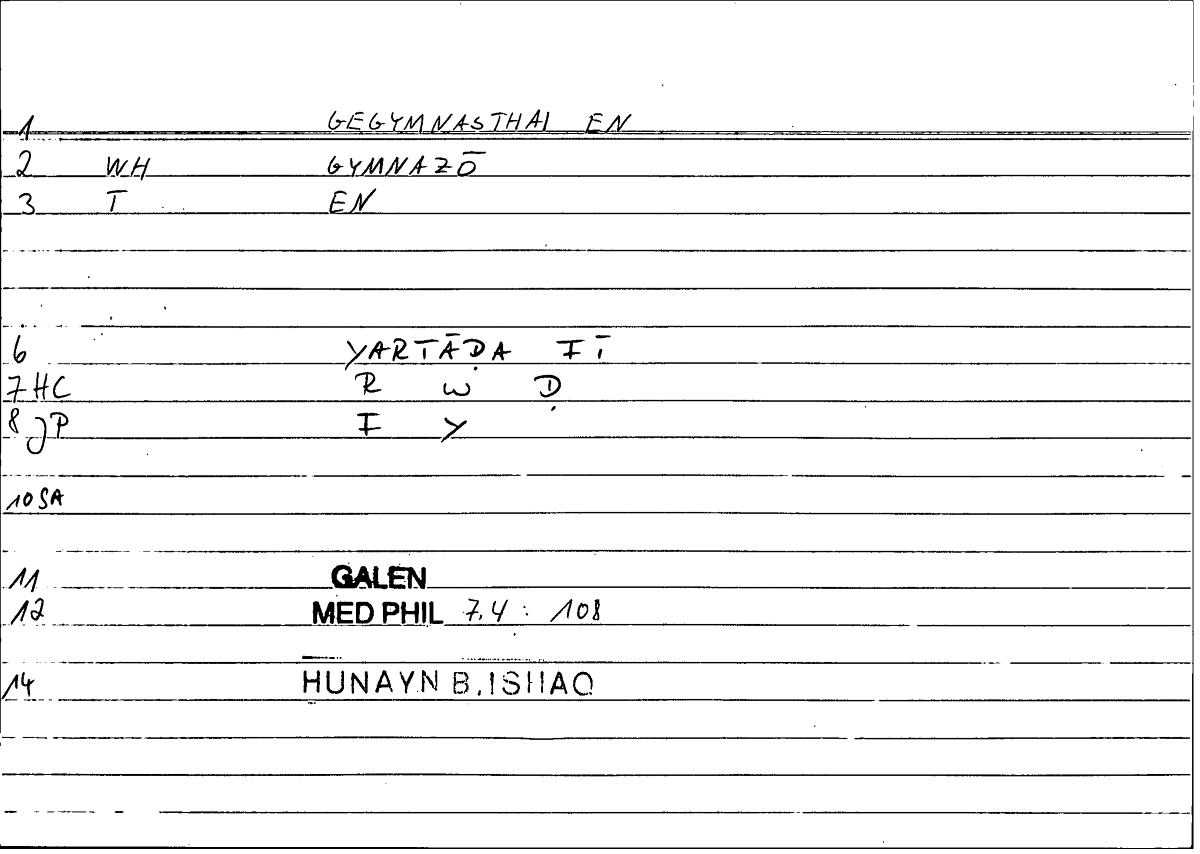 1 GEGYMNASTHAI EN
2 WH GYMNAZŌ
3 T EN
6 YARTĀḌA FĪ
7 HC R W Ḍ
8 JP F Y
10 SA
11 GALEN
12 MED PHIL 7.4 : 108
14 HUNAYN B. ISHAQ